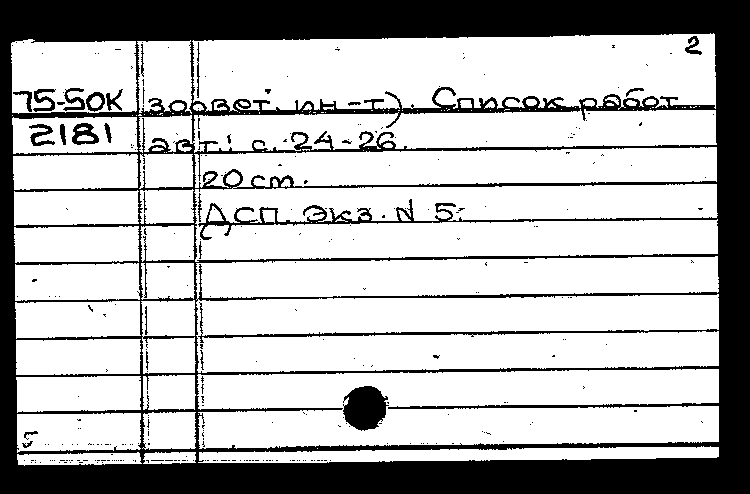 2
75-50К зоовет. ин-т). Список работ
2181 авт.: с. 24-26.
20 см.
ДСП. Экз. N 5.
5